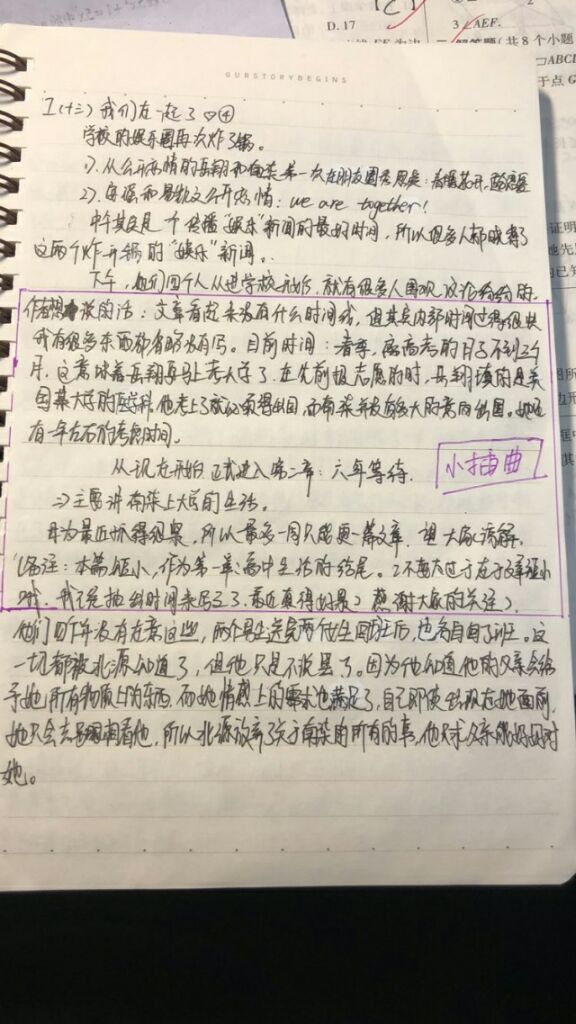 D. 17
【C】
3 ∠AEF.
二、解答题(共8个小题
OURSTORYBEGINS
I(十三)我们在一起了♡④
学校的娱乐圈再次炸了锅。
1). 从公开恋情的岳翔和南柒第一次在朋友圈秀恩爱:春暖花开,
2). 公开恋情:we are together!
中午其实是一个传播"娱乐"新闻的最好时间,所以很多人都晓得了
这两个炸开锅的"娱乐"新闻。
下午,他们四个人从进学校开始,就有很多人围观,议论纷纷的。
作者想说的话:文章看起来没有什么时间线,但其实内部时间过得很快
我有很多东西都省略没有写。目前时间:春季,离高考的日子不到三个
月,这意味着岳翔要马上考大学了,在先前报志愿的时,岳翔读的是美
国某大学的医学科,他考上了就必须得出国,而南柒并没有多大的意向出国。她还
有一年左右的考虑时间。
从现在开始正式进入第二章:六年等待.
小插曲
=>主要讲南柒上大学的生活。
因为最近抓得很紧,所以最多一周只能更一篇文章,望大家谅解。
(备注:本篇短小,作为第一章高中生活的结尾。(不要太过于在乎这章短小
哦,我已经抽出时间来写了,最近真得好累)感谢大家的关注)
他们四个并没有在意这些,两个男生送完两个女生回班后,也各自回了班。这
一切都被北源知道了,但他只是不说罢了。因为他知道他的父亲会给
予她所有物质上的东西,而她情感上的需求也满足了,自己即使出现在她面前,
她只会去看着他,所以北源放弃了关于南柒的所有的事,他只求父亲能好好对
她。